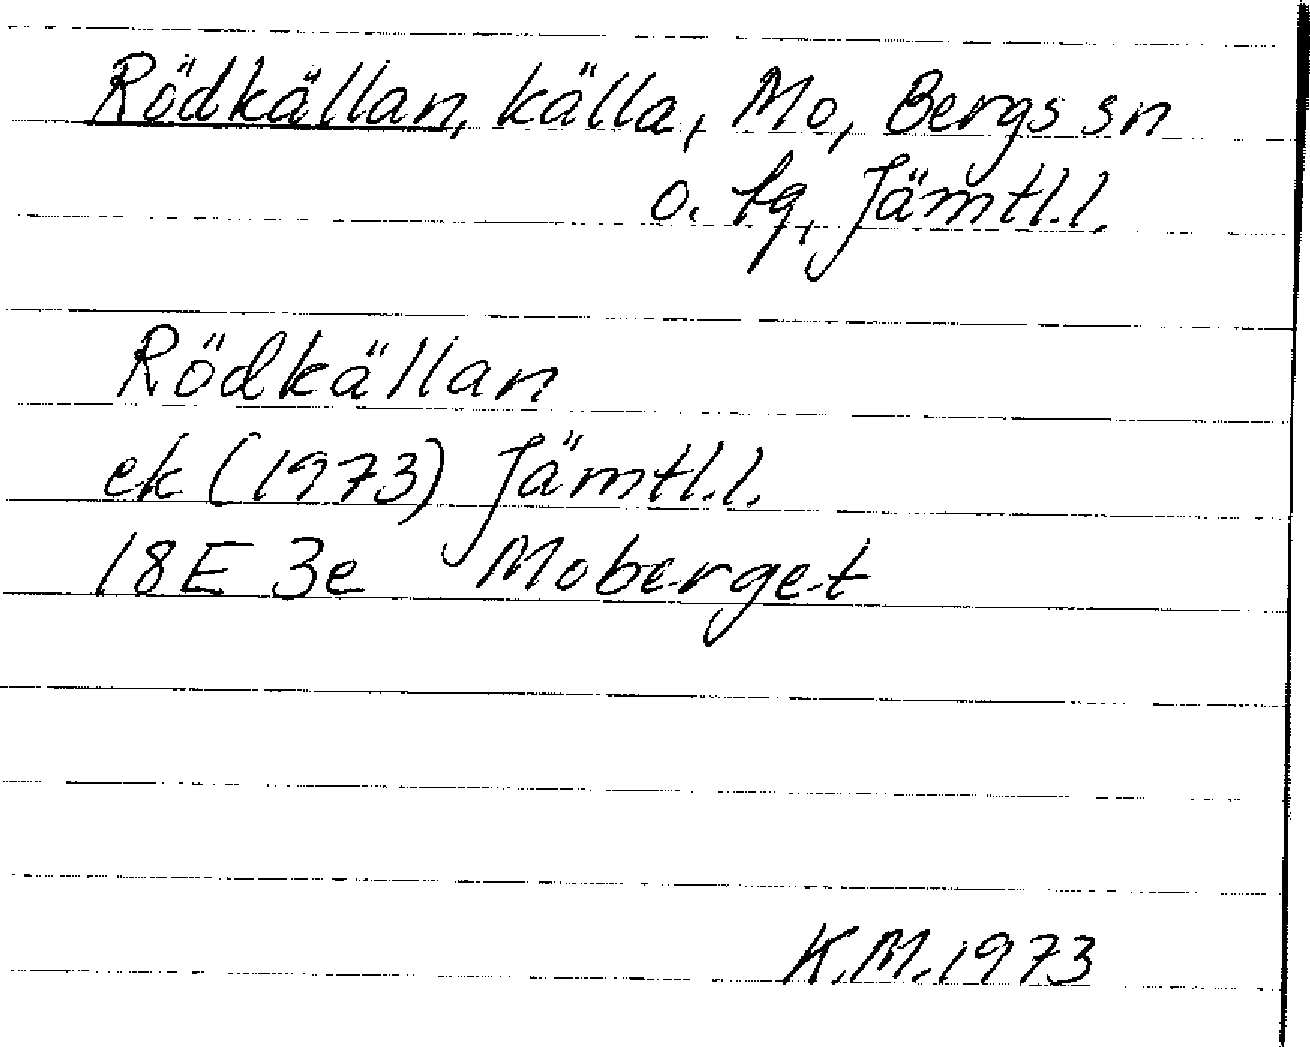 Rödkällan, källa, Mo, Bergs sn
o. tg, Jämtl.l.
Rödkällan
ek (1973) Jämtl.l.
18E 3e Moberget
K.M.1973